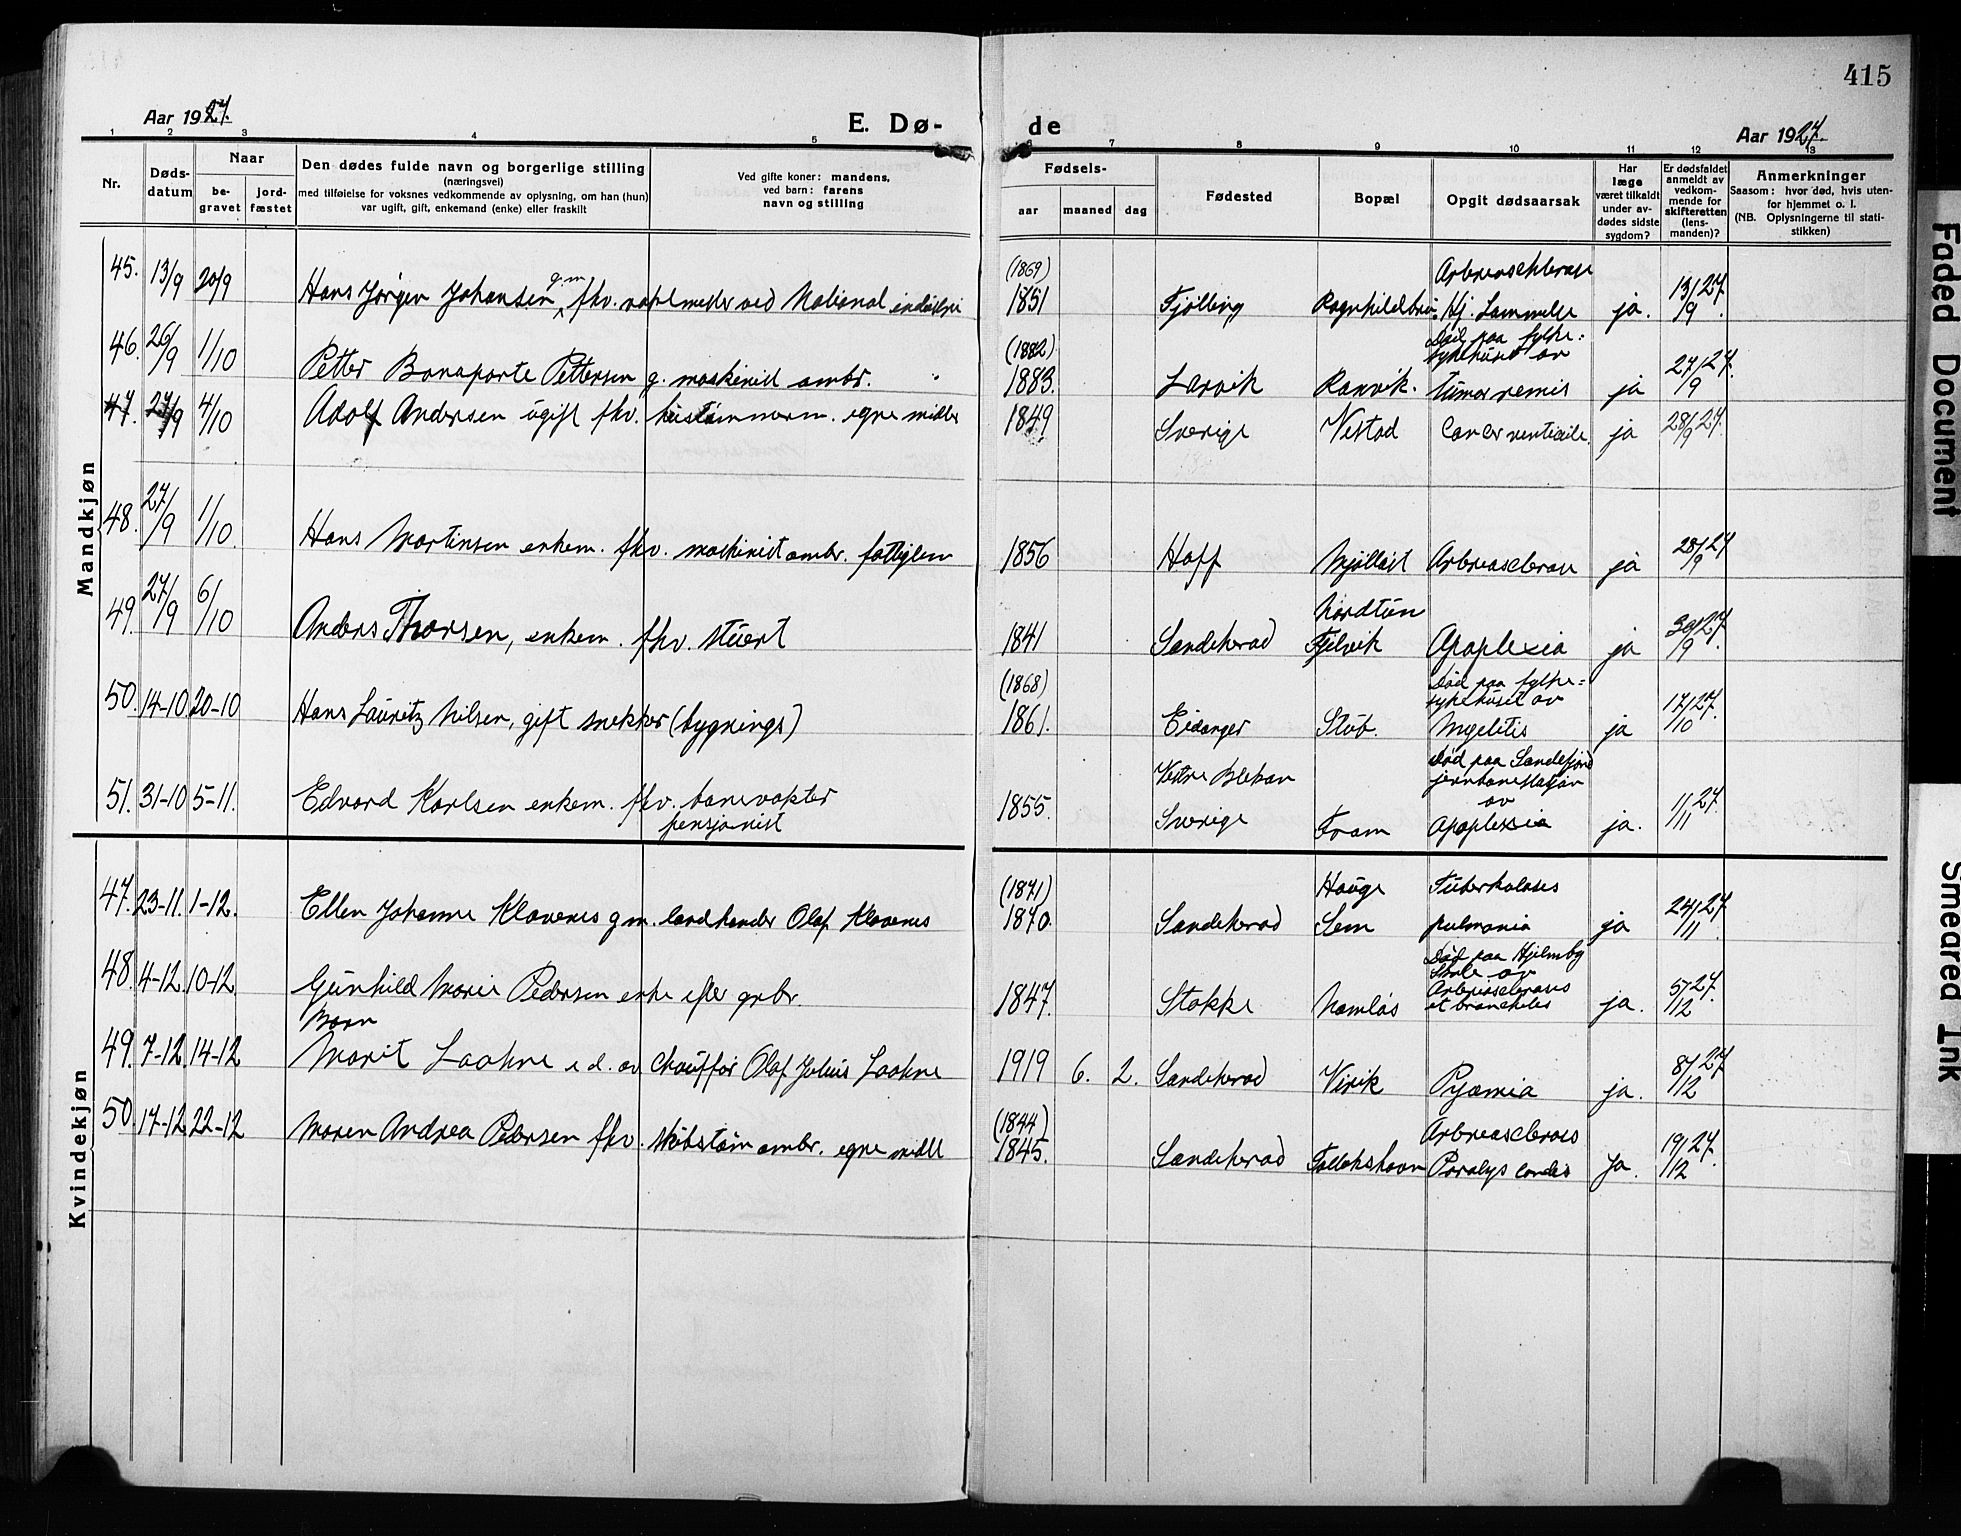 415
Aar 1927.
E. Dø-
de
Aar 1927.
1 2 3 4 5 6 7 8 9 10 11 12 13
Nr.
Døds-
datum
Naar
be-
gravet
jord-
fæstet
Den dødes fulde navn og borgerlige stilling
(næringsvei)
med tilføielse for voksnes vedkommende av oplysning, om han (hun)
var ugift, gift, enkemand (enke) eller fraskilt
Ved gifte koner: mandens,
ved barn: farens
navn og stilling
Fødsels-
aar maaned dag
Fødested
Bopæl
Opgit dødsaarsak
Har
læge
været tilkaldt
under av-
dødes sidste
sygdom?
Er dødsfaldet
anmeldt av
vedkom-
mende for
skifteretten
(lens-
manden)?
Anmerkninger
Saasom: hvor død, hvis uten-
for hjemmet o. l.
(NB. Oplysningerne til stati-
stikken)
Mandkjøn
45. 13/9 20/9 Hans Jørgen Johansen gm. fhv. ved National
(1869) 1851 Tjølling Hj. Lammelse ja. 13/9 27.
46. 26/9 1/10 Petter Bonaparte Pettersen g. maskinist ambr.
(1882) 1883. Larvik Ranvik. Død paa fylke=
sykehuset av
tumor ja 27/9 27.
47. 27/9 4/10 Adolf Andersen ugift fhv. egne midler
1849 Sverige Vestad Cancer ja 28/9 27.
48. 27/9 1/10 Hans Martinsen enkem. fhv. maskinist ambr. fattiglem
1856 Hoff Mjølløst ja 28/9 27
49. 27/9 6/10 Anders Thorsen, enkem. fhv. stuert
1841 Sandeherad Nordtun
Fjelvik Apoplexia ja 30/9 27.
50. 14-10 20-10 Hans Lauritz Nilsen, gift snekker (bygnings)
(1868) 1861. Eidanger Stub. Død paa fylke=
sykehuset av
Myelitis ja 17/10 27.
51. 31-10 5-11. Edvard Karlsen enkem. fhv. banevakter
pensjonist
1855. Vestre
Sverige Fram Død paa Sandefjord
jernbanestasjon
av
Apoplexia ja. 1/11 27.
Kvindekjøn
47. 23-11. 1-12. Ellen Johanne Klavenes g m. landhandler Olaf Klavenes
(1871) 1870. Sandeherad Hauge
Sem Tuberkulosis
pulmonia ja 24/11 27.
48. 4-12. 10-12. Gunhild Marie Pedersen enke efter grbr.
1847. Stokke Namløs Død paa Hjelmby
Skole av
ja. 5/12 27.
49. 7-12. 14-12 Marit Laahne e d. av chauffør Olaf Julius Laahne
1919 6. 2. Sandeherad Virik Pyæmia ja. 8/12 27
50. 17-12. 22-12 Maren Andrea Pedersen fhv. ambr. egne midl
(1844) 1845. Sandeherad Ja. 19/12 27.
Faded Document
Smeared Ink